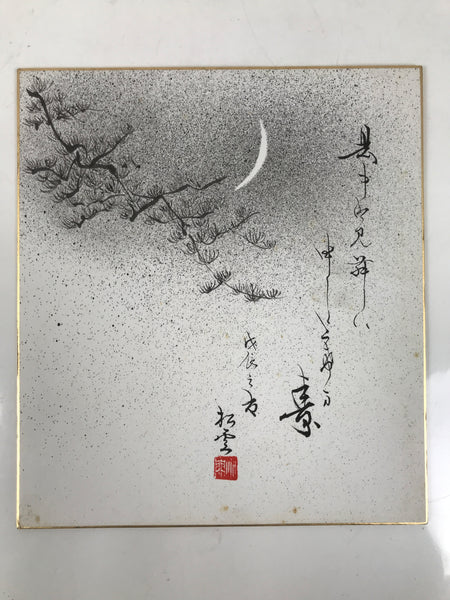 暑中お見舞い
申し上げます
戊辰之夏
松雲